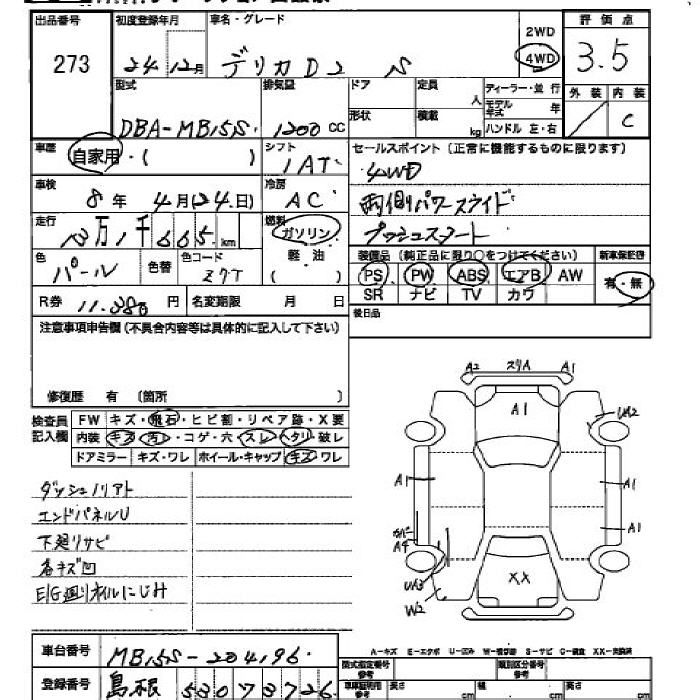 出品番号 273
初度登録年月 24 12月
車名・グレード デリカD2 S
2WD 4WD
評価点 3.5
外装 内装 C
型式 DBA-MB15S
排気量 1200 CC
ドア 定員 人
形状 積載 kg
ディーラー・並行
モデル年式 年
ハンドル 左・右
車歴 自家用・( )
シフト 1AT
セールスポイント(正常に機能するものに限ります)
4WD
両側パワースライド
プッシュスタート
車検 8年 4月(24日)
冷房 AC
走行 13万1千665km
燃料 ガソリン 軽油 ( )
色 パール 色替 色コード Z7T
R券 11,380円 名変期限 月 日
装備品(純正品に限り○をつけてください) 新車保証書
PS PW ABS エアB AW 有・無
SR ナビ TV カワ
後日品
注意事項申告欄(不具合内容等は具体的に記入して下さい)
修復歴 有 〔箇所 〕
検査員記入欄
FW キズ・飛石・ヒビ割・リペア跡・X要
内装 キズ・汚レ・コゲ・穴・スレ・ヘタリ・破レ
ドアミラー キズ・ワレ ホイール・キャップ キズ・ワレ
ダッシュノリアト
エンドパネルU
下廻リサビ
各キズ凹
E/G廻リオイルにじみ
A2 スリA A1
A1
UA2
A1 A1
A1
A4
UA3
W2
XX
A-キズ E-エクボ U-凹み W-補修跡 S-サビ C-腐食 XX-交換済
車台番号 MB15S-204196
登録番号 島根 530 73726
型式指定番号 参考 類別区分番号 参考
車庫証明用参考 長さ cm 幅 cm 高さ cm